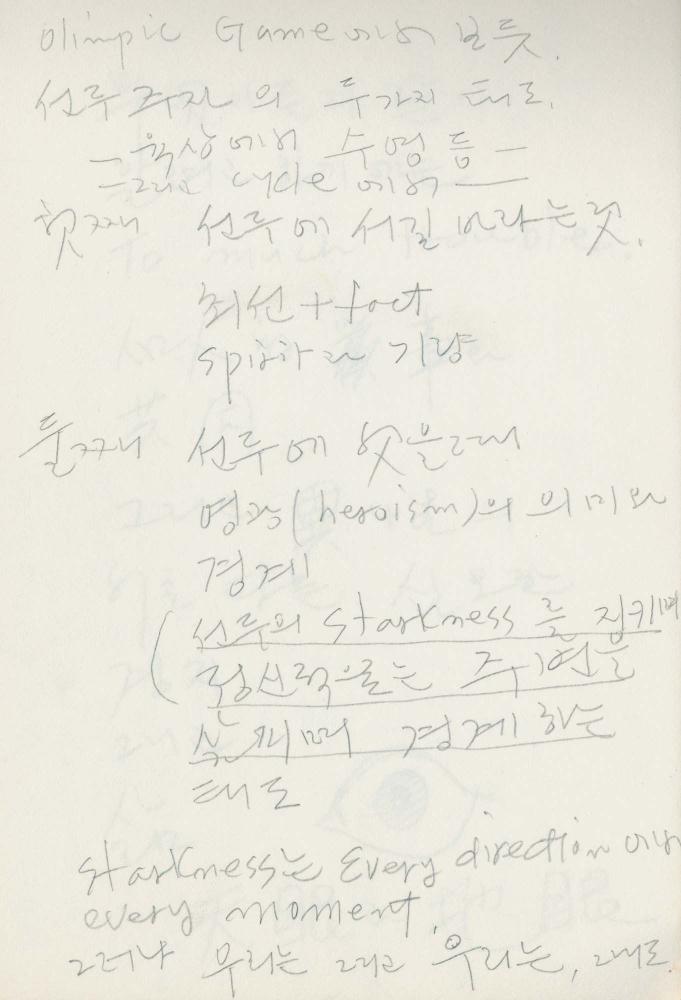 Olimpic Game에서 보듯.
선두 주자의 두가지 태도.
— 육상에서 수영 등 —
— 그리고 cycle 에서 —
첫째 선두에 서길 바라는 것.
최선 + fact
spirit과 기량
둘째 선두에 섯을때
영광(heroism)의 의미와
경계
(선두의 starkness 를 지키며
정신력으로는 주변을
살피며 경계하는
태도
starkness는 Every direction에서
every moment.
그러나 우리는 그리고 우리는, 그래도